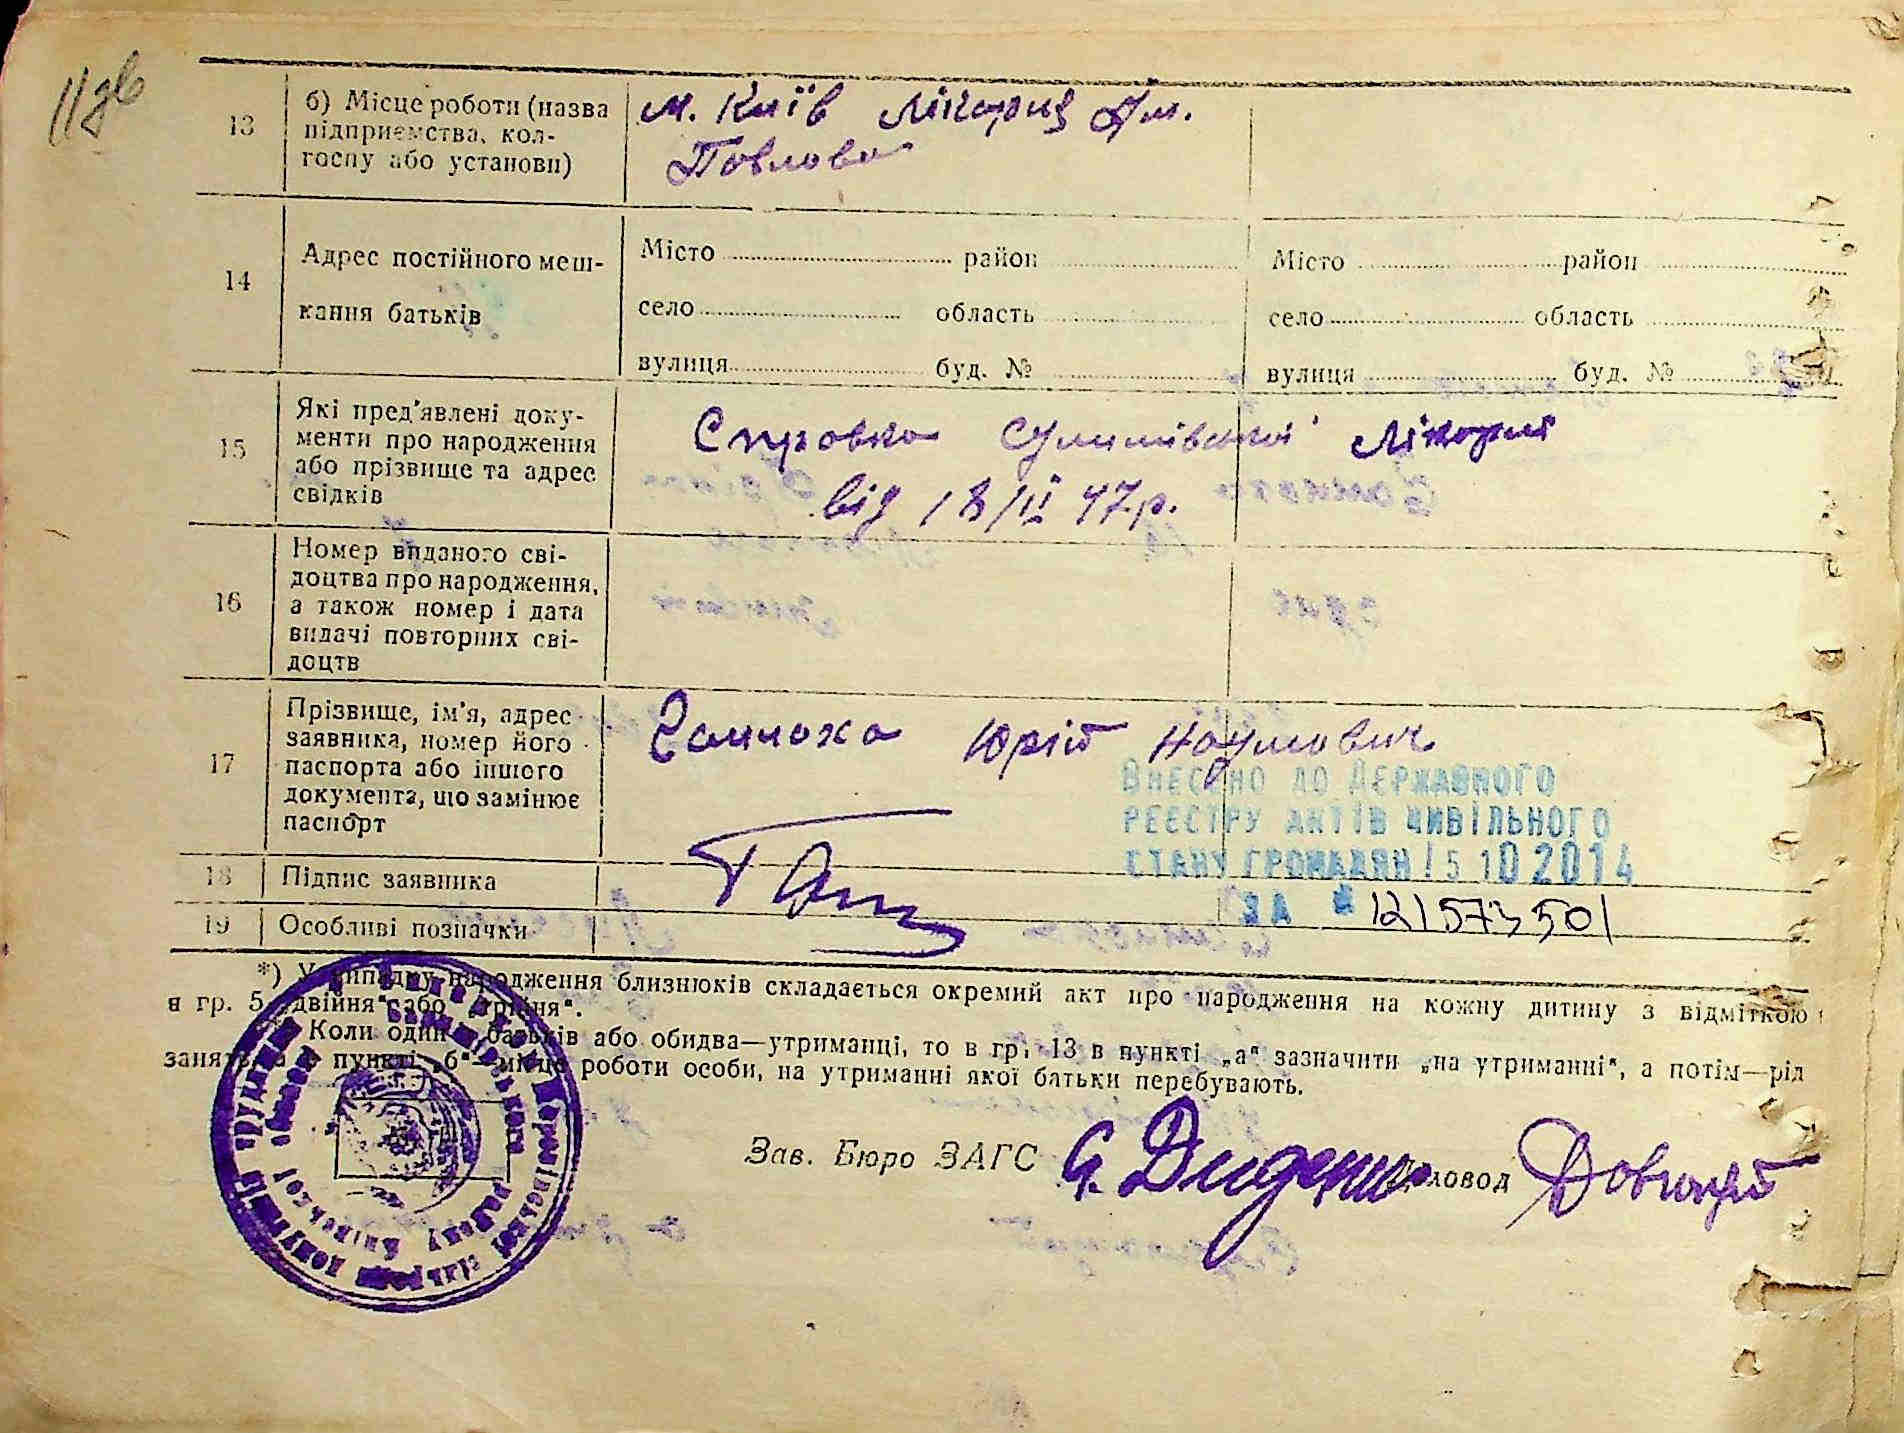 11 зв
13
б) Місце роботи (назва
підприємства, кол-
госпу або установи)
м. Київ Лікарня ім.
Павлова
14
Адрес постійного меш-
кання батьків
Місто район
село область
вулиця буд. №
Місто район
село область
вулиця буд. №
15
Які пред'явлені доку-
менти про народження
або прізвище та адрес
свідків
Справка Лікарні
від 18/II 47р.
16
Номер виданого сві-
доцтва про народження,
а також номер і дата
видачі повторних сві-
доцтв
17
Прізвище, ім'я, адрес
заявника, номер його
паспорта або іншого
документа, що замінює
паспорт
Юрій Наумович
ВНЕСЕНО ДО ДЕРЖАВНОГО
РЕЄСТРУ АКТІВ ЦИВІЛЬНОГО
СТАНУ ГРОМАДЯН 15 10 2014
ЗА # 121573501
18
Підпис заявника
19
Особливі позначки
*) У випадку народження близнюків складається окремий акт про народження на кожну дитину з відміткою
в гр. 5 „двійня“ або „трійня“.
Коли один з батьків або обидва—утриманці, то в гр. 13 в пункті „а“ зазначити „на утриманні“, а потім—рід
заняття, а в пункті „б“—місце роботи особи, на утриманні якої батьки перебувають.
Зав. Бюро ЗАГС
Діловод